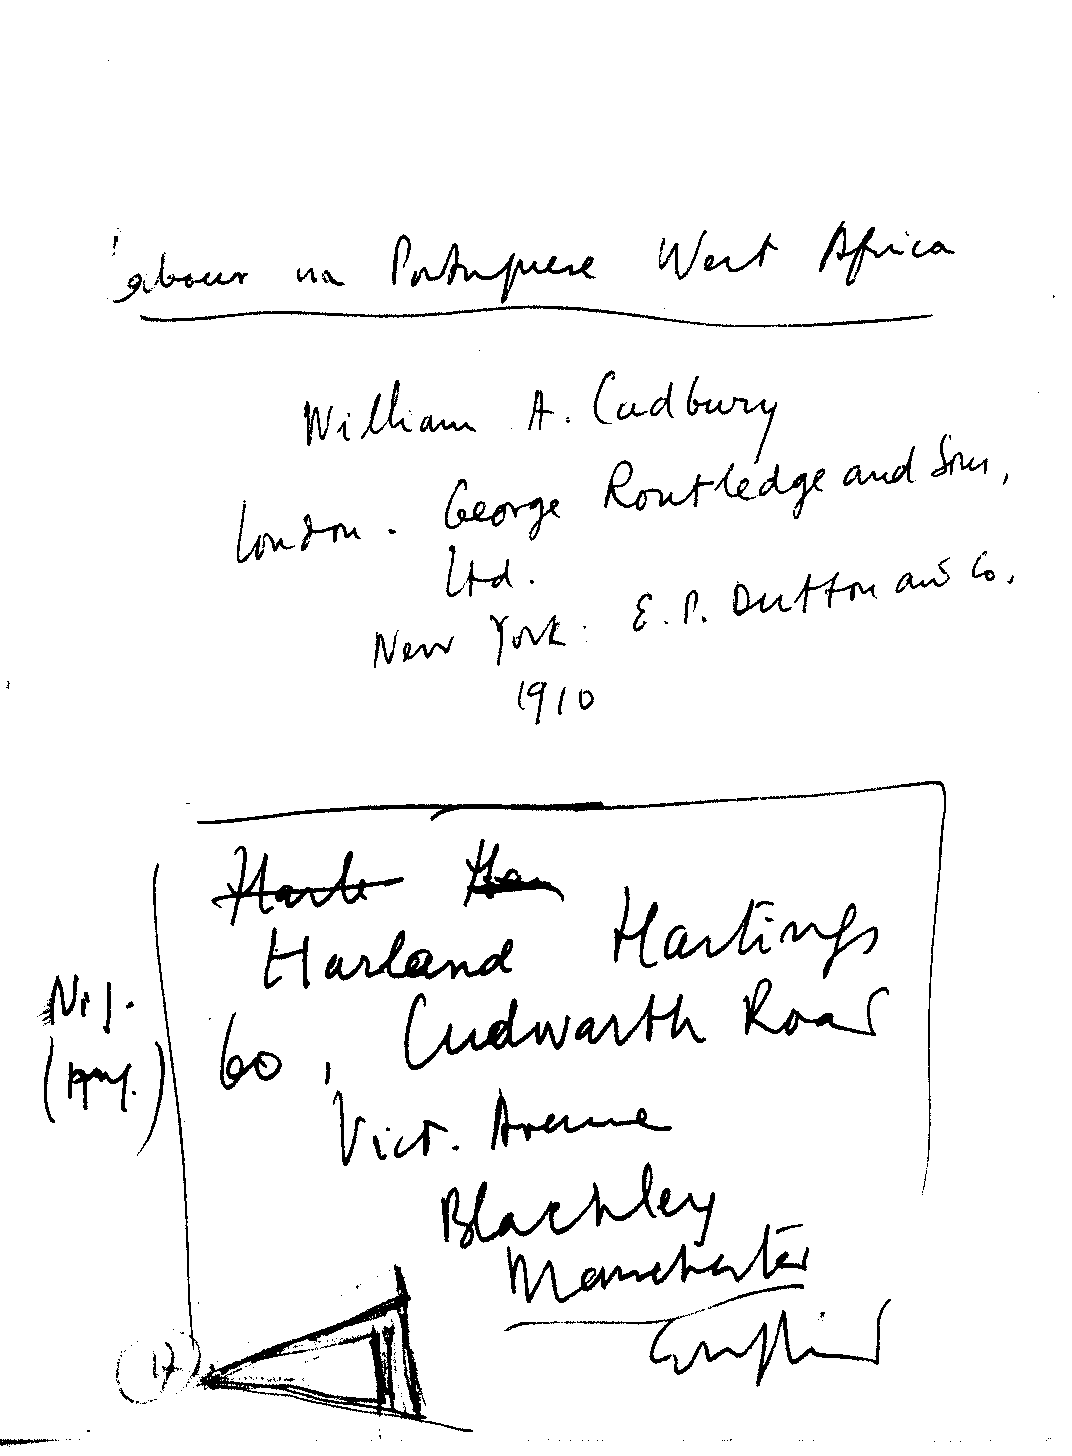 Labour in Portuguese West Africa
William A. Cadbury
London. George Routledge and Sons,
Ltd.
New York: E. P. Dutton and Co.
1910
Harland Hastings
60, Cudwarth Road
Vict. Avenue
Blackley
Manchester
England
17